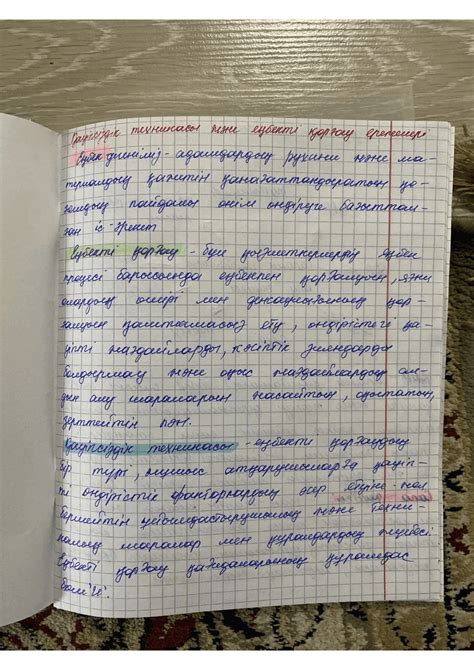 Қауіпсіздік техникасы және еңбекті қорғау ережелері
Еңбек дегеніміз - адамдардың рухани және ма-
териалдық қажетін қанағаттандыратын қо-
ғамдық пайдалы өнім өндіруге бағыттал-
ған іс-әрекет
Еңбекті қорғау - бұл қызметкерлердің еңбек
процесі барысында еңбекпен қорғалуын, яғни
олардың өмірі мен денсаулығының қор-
ғалуын қамтамасыз ету, өндірістегі қа-
уіпті жағдайларды, кәсіптік зияндарда
болдырмау және оқыс жағдайлардың ал-
дын алу шараларын жасайтын,
зерттейтін пән.
Қауіпсіздік техникасы - еңбекті қорғаудың
бір түрі, жұмыс атқарушыларға қауіп-
ті өндірістік факторлардың әсер етуіне жол
бермейтін ұйымдастырушылық және техни-
калық шаралар мен құралдардың жүйесі.
Еңбекті қорғау қағидаларының құрамдас
бөлігі.